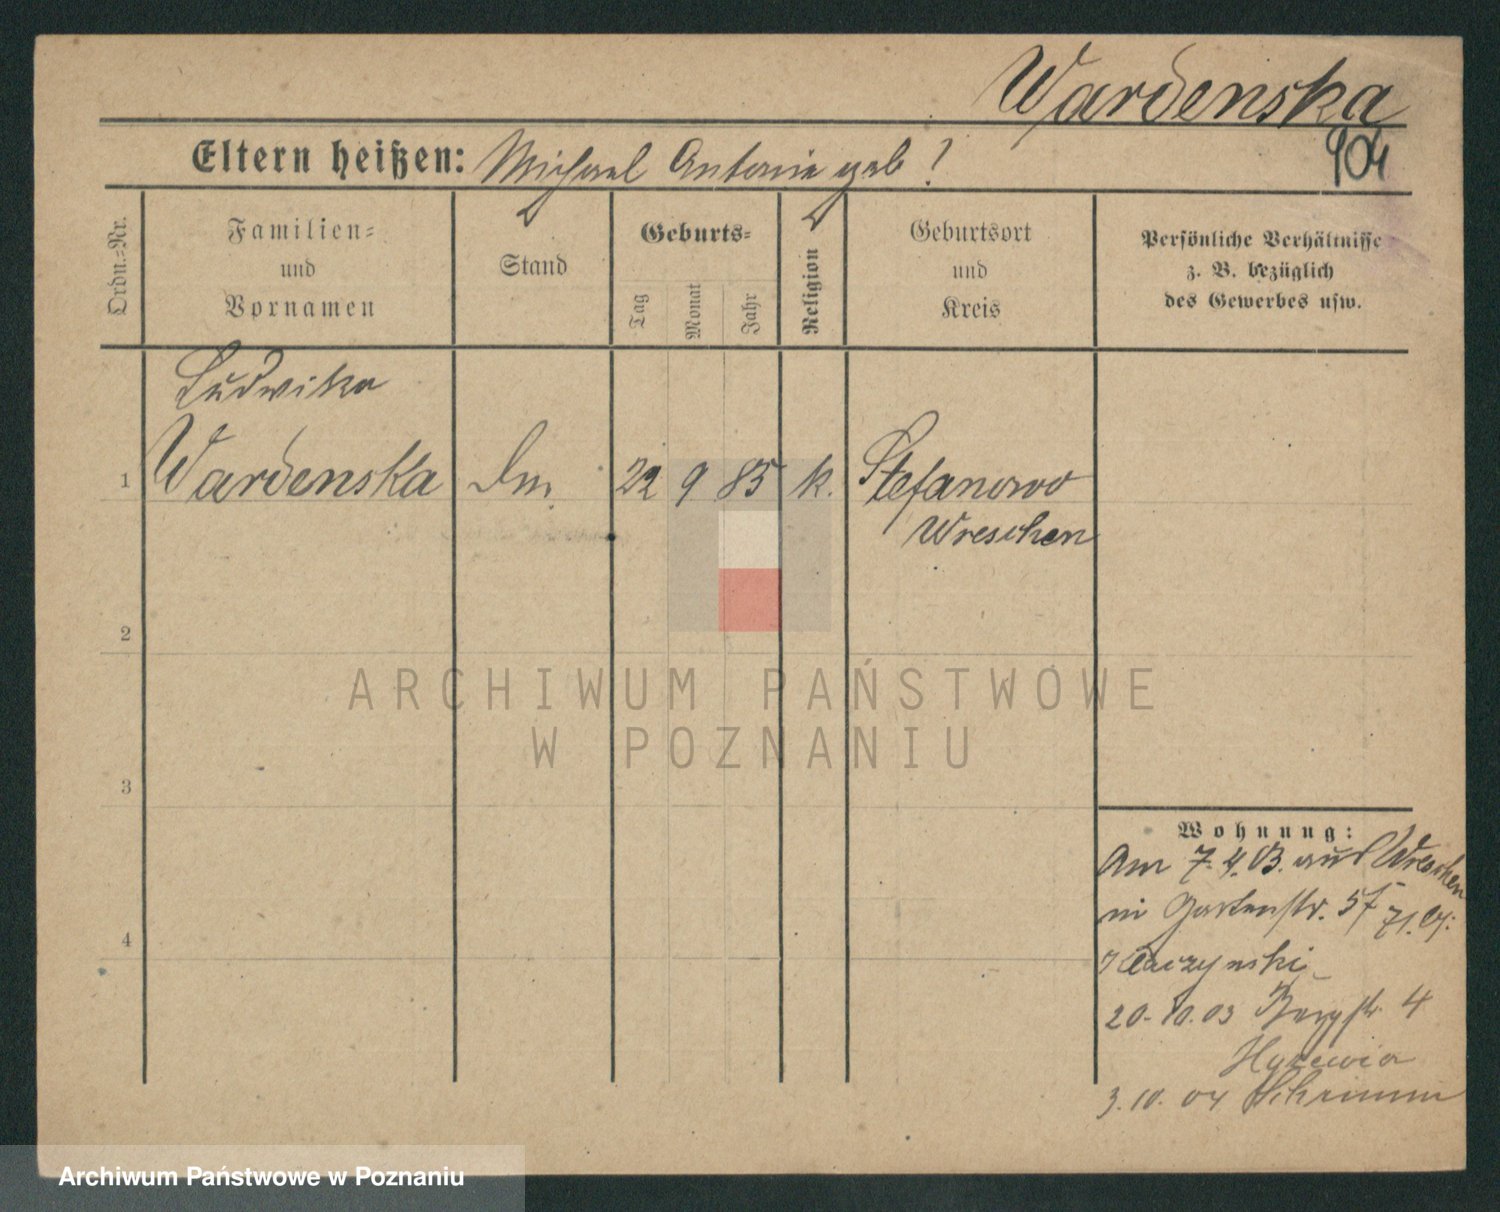 Wardenska
904
Eltern heißen: Michael Antonie geb ?
Ordn.-Nr.
Familien-
und
Vornamen
Stand
Geburts-
Tag
Monat
Jahr
Religion
Geburtsort
und
Kreis
Persönliche Verhältnisse
z. B. bezüglich
des Gewerbes usw.
Ludwika
1 Wardenska Dm. 22 9 85 k. Stefanowo
Wreschen
2
3
4
ARCHIWUM PAŃSTWOWE
W POZNANIU
Wohnung:
Am 7.4.03. aus Wreschen
in Gartenstr. 57
20.10.03 Bergstr. 4
3.10.04 Schrimm
Archiwum Państwowe w Poznaniu